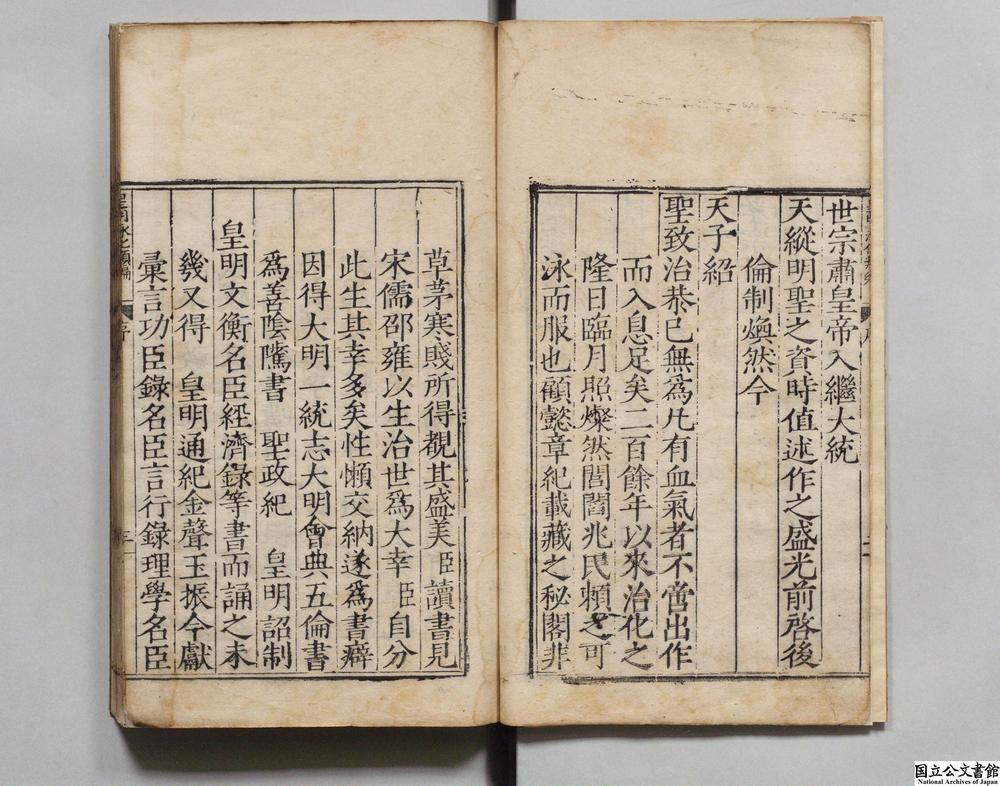 世宗肅皇帝入繼大統
天縱明聖之資時值述作之盛光前啓後
倫制煥然今
天子紹
聖致治恭己無為凡有血氣者不啻出作
而入息足矣二百餘年以來治化之
隆日臨月照燦然閭閻兆民賴之可
泳而服也顧懿章紀載藏之秘閣非
草茅寒賤所得覩其盛美臣讀書見
宋儒邵雍以生治世爲大幸臣自分
此生其幸多矣性懶交納遂爲書癖
因得大明一統志大明會典五倫書
爲善陰隲書 聖政紀 皇明詔制
皇明文衡名臣經濟錄等書而誦之未
幾又得 皇明通紀金聲玉振今獻
彙言功臣錄名臣言行錄理學名臣
序
三
二
国立公文書館
National Archives of Japan